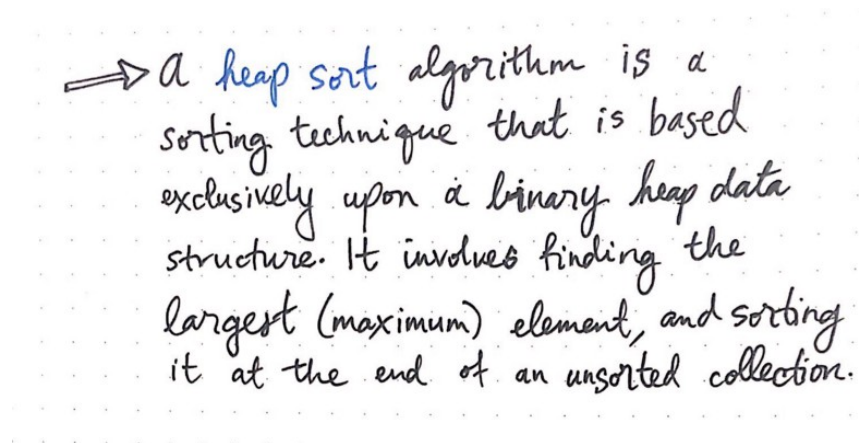 a heap sort algorithm is a
sorting technique that is based
exclusively upon a binary heap data
structure. It involves finding the
largest (maximum) element, and sorting
it at the end of an unsorted collection.